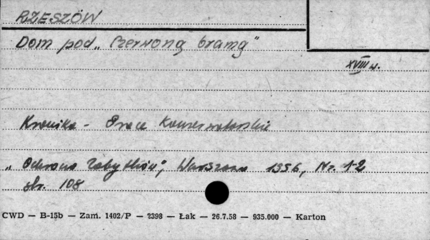 RZESZÓW
Dom pod „Czerwoną bramą"
XVIII w.
Kronika - Prace Konserwatorskie
„Ochrona Zabytków", Warszawa 1956, Nr. 1-2
str. 108
CWD — B-15b — Zam. 1402/P — 2398 — Łak — 26.7.58 — 935.000 — Karton